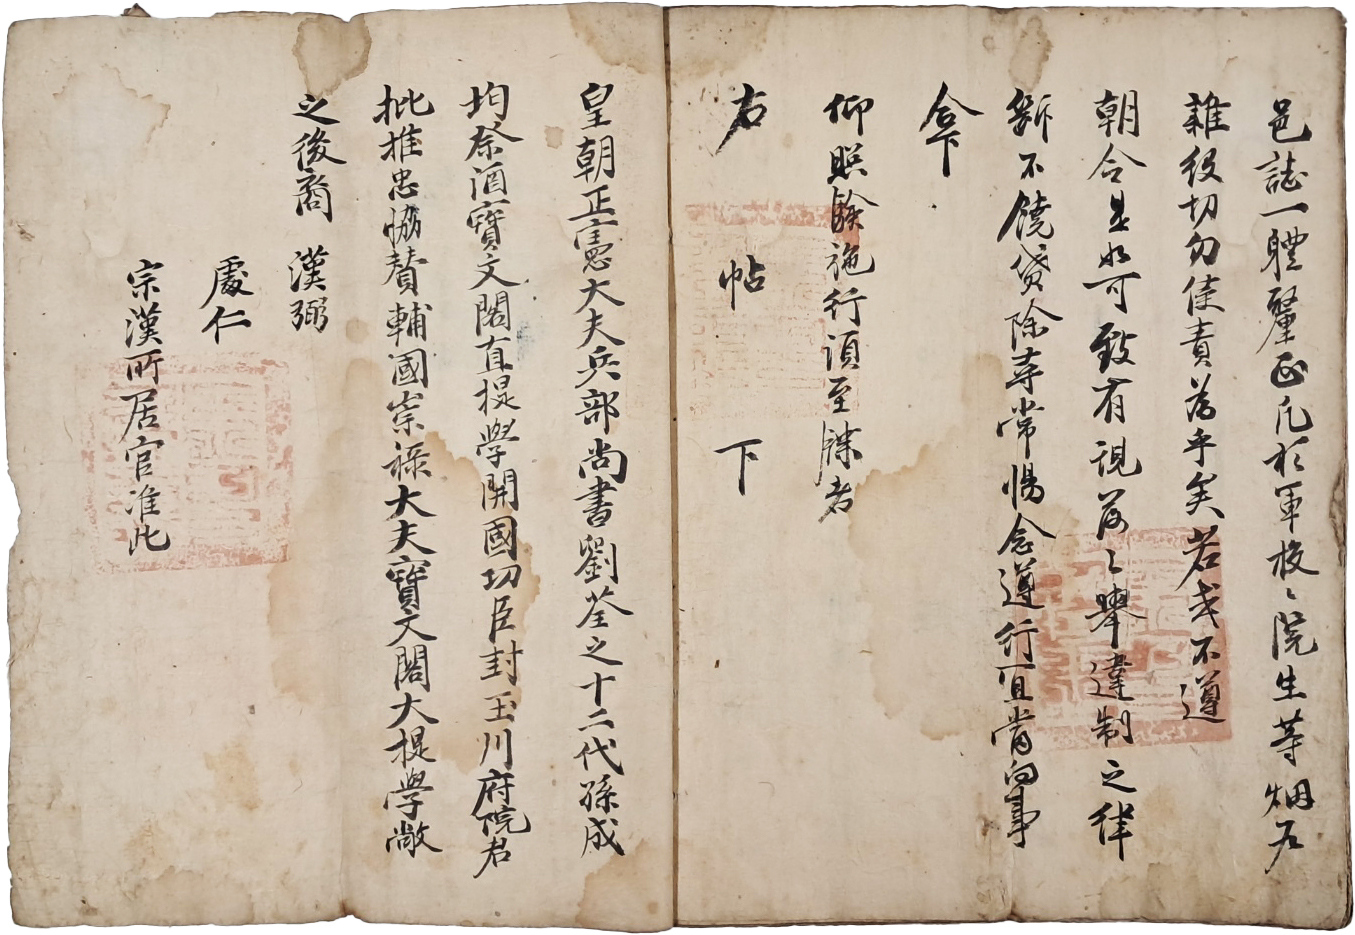 邑誌一體釐正凡於軍校〻院生等烟戶
雜役切勿侵責爲乎矣若或不遵
朝令是如可致有現發之擧違制之律
斷不饒貸除尋常惕念遵行宜當向事
合下
仰照驗施行須至牒者
右帖下
皇朝正憲大夫兵部尚書劉荃之十二代孫成
均祭酒寶文閣直提學開國功臣封玉川府院君
批推忠協贊輔國崇祿大夫寶文閣大提學敞
之後裔 漢弼
處仁
宗漢所居官准此